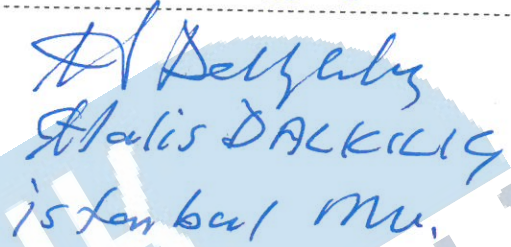 Halis DALKILIÇ
istanbul mv.